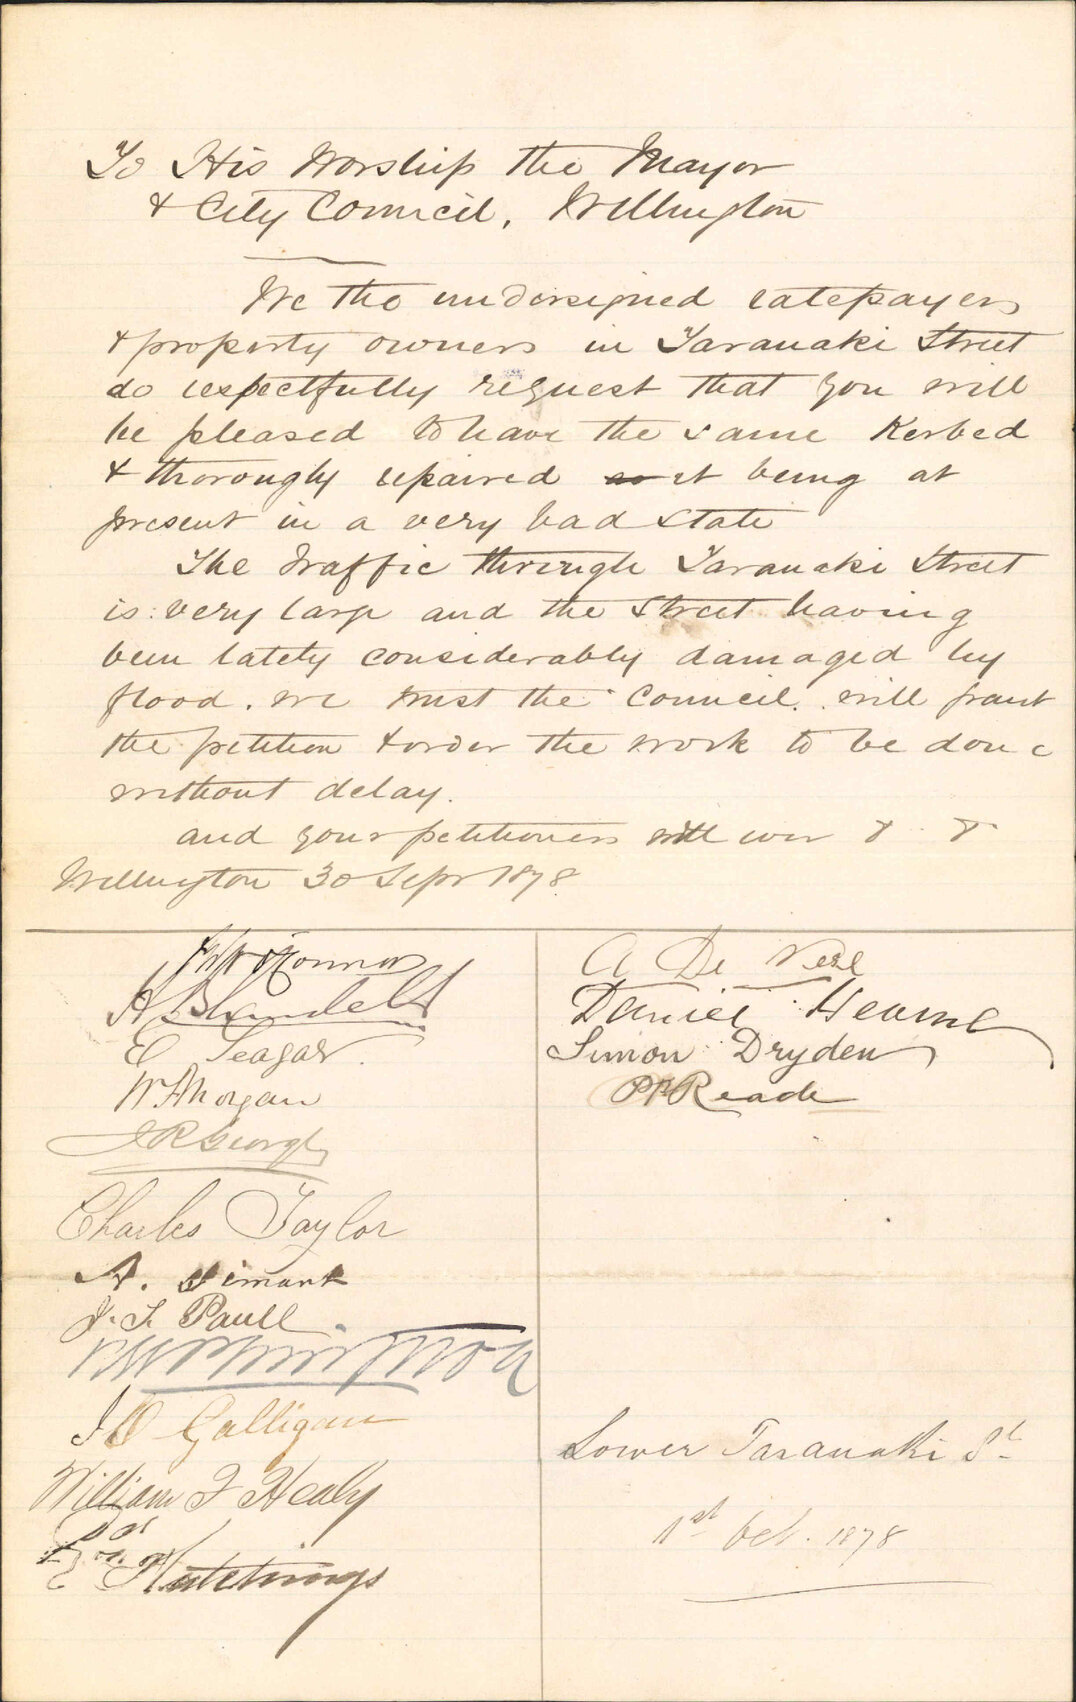 To His Worship the Mayor
& City Council, Wellington
We the undersigned ratepayers
& property owners in Taranaki Street
do respectfully request that you will
be pleased to have the same Kerbed
& thorougly repaired so it being at
present in a very bad state
The traffic through Taranaki Street
is very large and the Street having
been lately considerably damaged by
flood. we trust the Council will grant
the petition & order the work to be done
without delay.
and your petitioners will ever & &
Wellington 30 Sepr 1878
O'Connor
A Blundell
E Seagar
W. Morgan
J R George
Charles Taylor
A. Simant
J. S. Paull
J O Galligan
William F Healy
Hutchings
A De Vere
Daniel Hearne
Simon Dryden
Reade
Lower Taranaki St
1st Oct. 1878